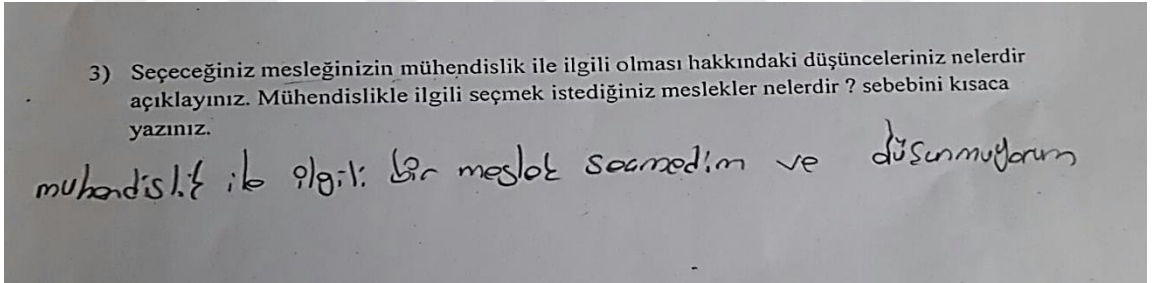 3) Seçeceğiniz mesleğinizin mühendislik ile ilgili olması hakkındaki düşünceleriniz nelerdir
açıklayınız. Mühendislikle ilgili seçmek istediğiniz meslekler nelerdir ? sebebini kısaca
yazınız.
muhendislik ile ilgili bir meslek secmedim ve düşünmuyorum